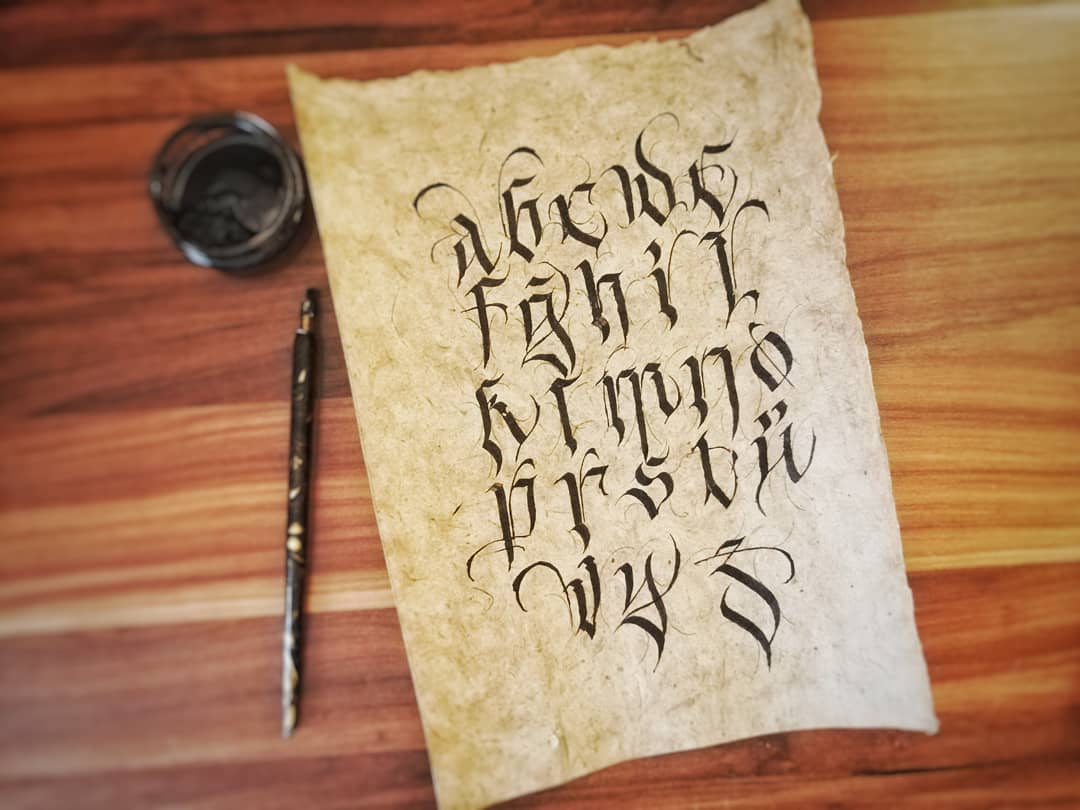 a b c d e
f ğ h i j
k l m n o
p r s t ü
v y z